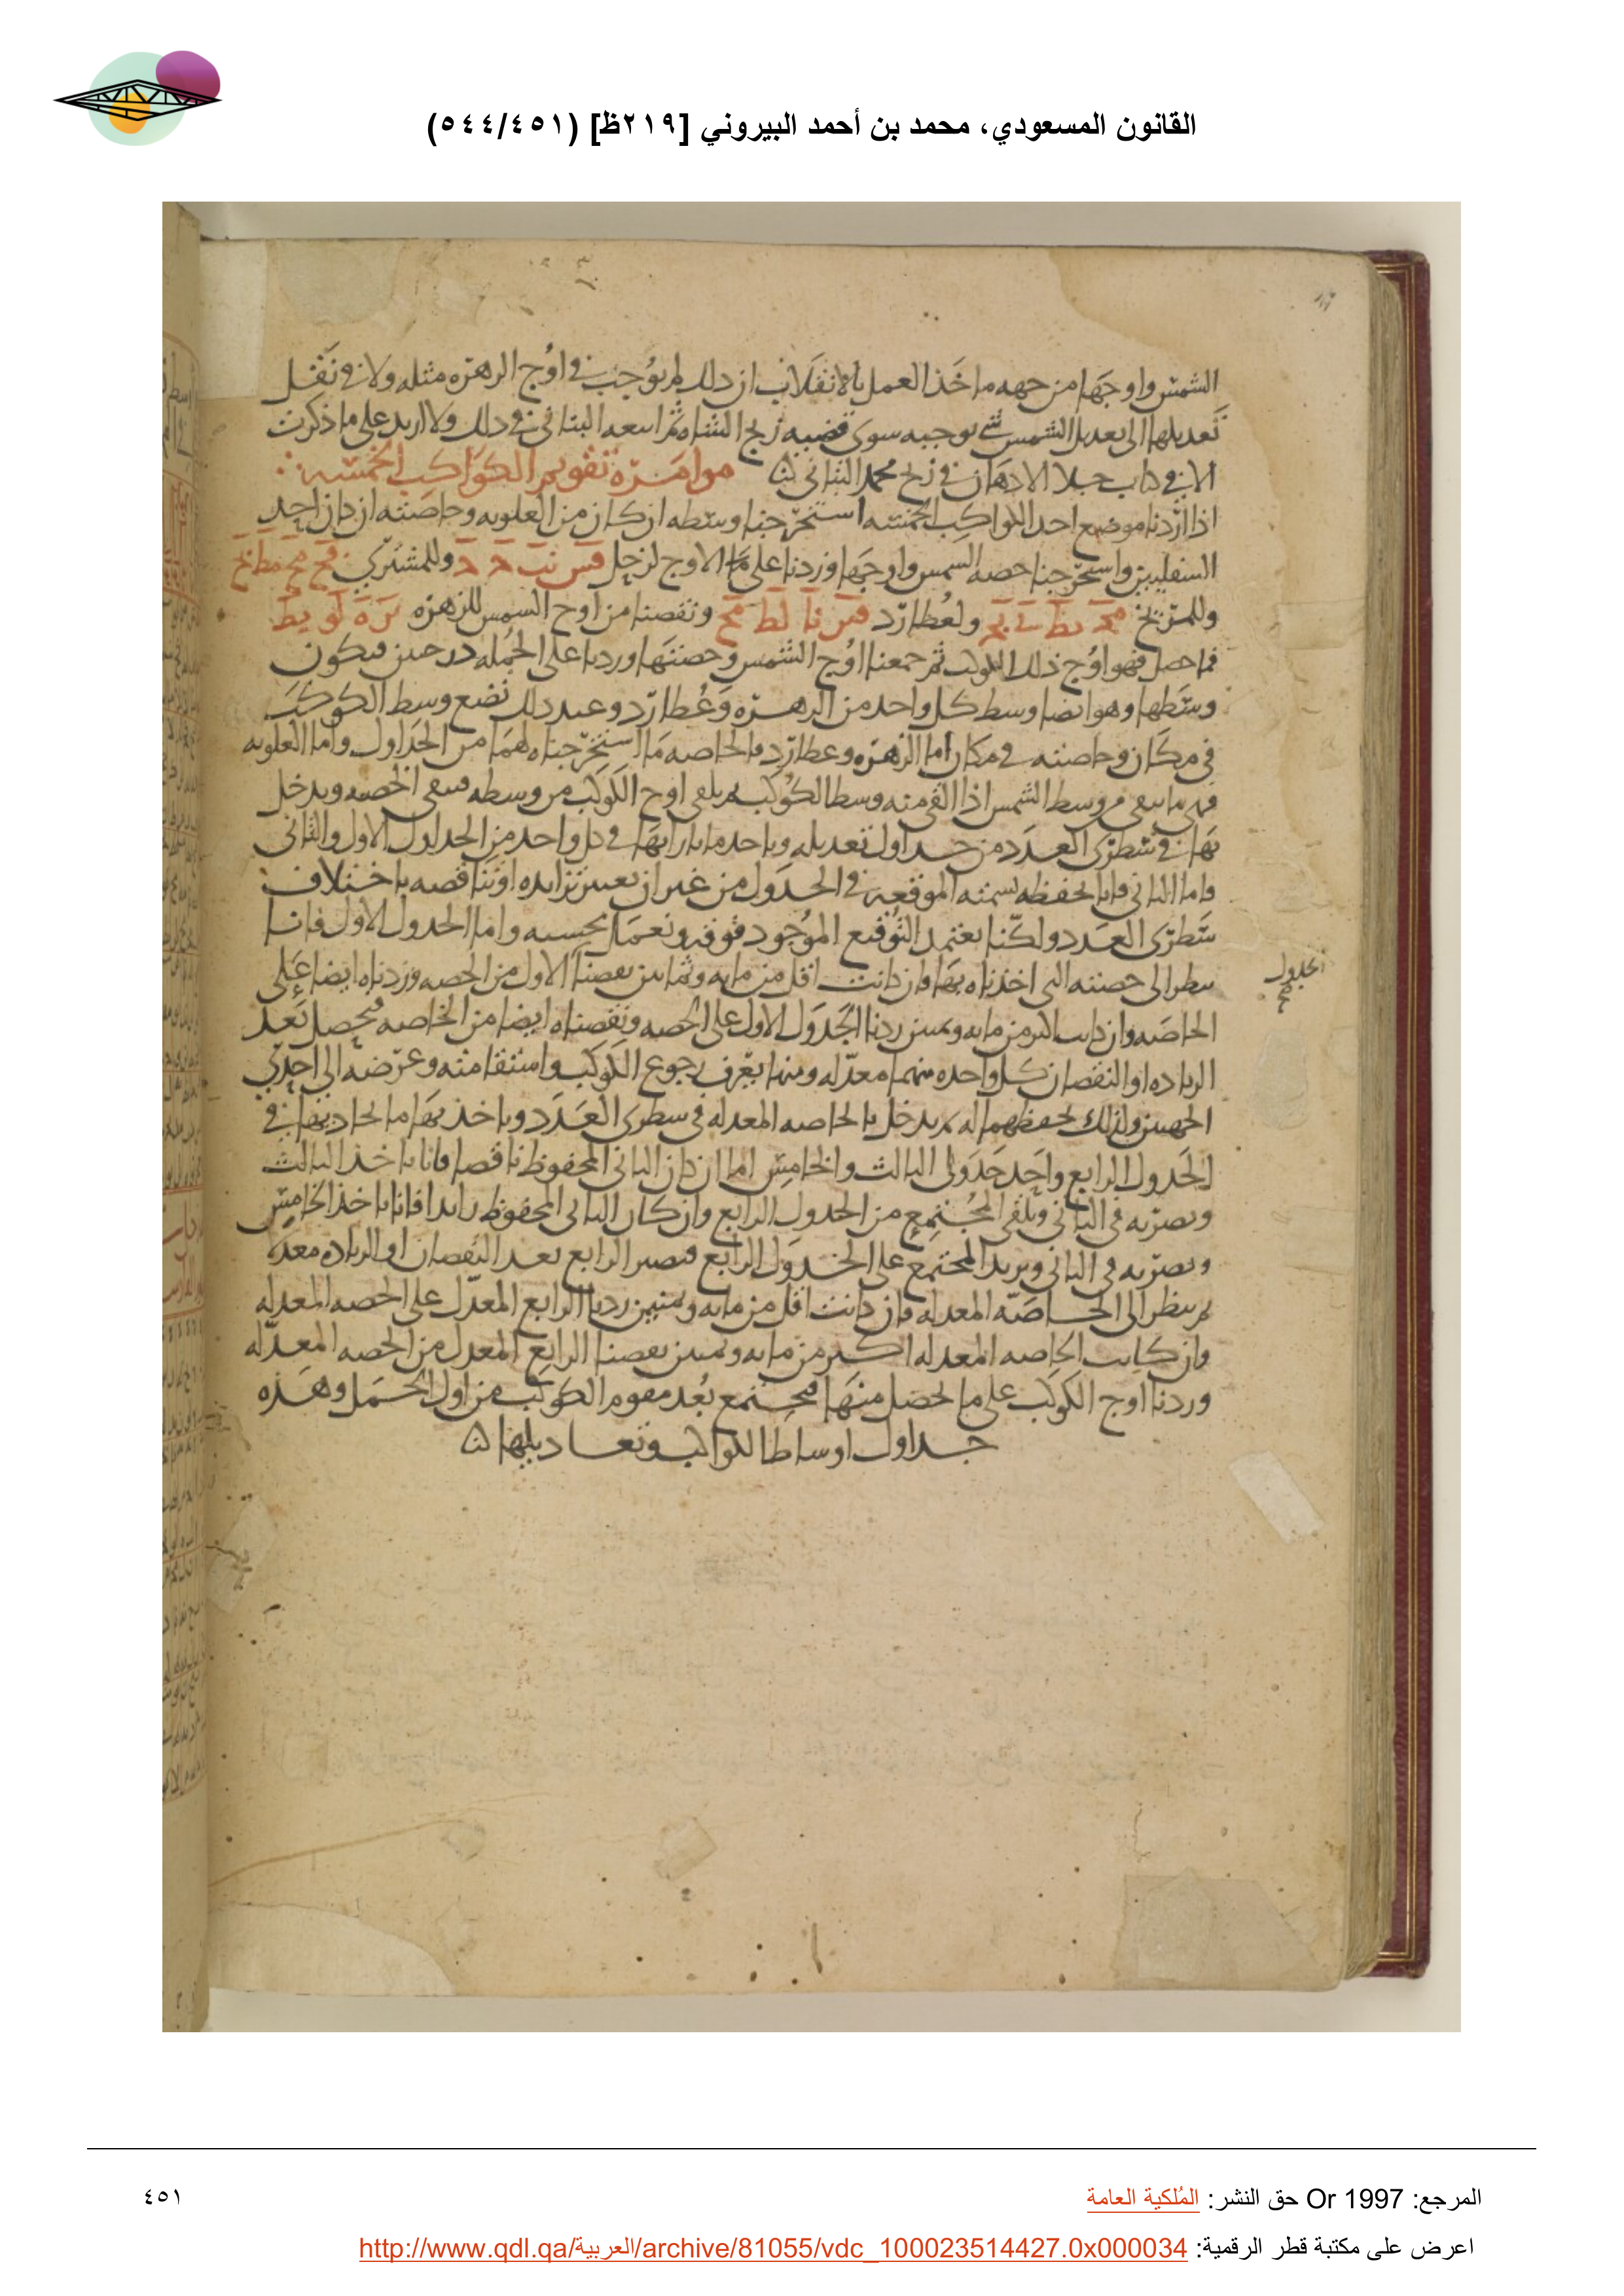 القانون المسعودي، محمد بن أحمد البيروني [٢١٩ظ] (٥٤٤/٤٥١)
الشمس واوجها من جهه ماخذ العمل بالانقلاب ان ذلك لم يوجب في اوج الزهره مثله ولا في نقل
تعديلها الى تعديل الشمس شي يوجبه سوى قضيه زيج الشاه ثم اتبعه البتاني في ذلك ولا ازيد على ما ذكرت
الا في كتاب جلا الاذهان في زيج محمد البتاني
موامرة تقويم الكواكب الخمسه
اذا اردنا موضع احد الكواكب الخمسه استخرجنا وسطه ان كان من العلويه وخاصته ان كان احد
السفليين واستخرجنا حصه الشمس واوجها وزدنا على الاوج لزحل وللمشتري
وللمريخ ولعطارد ونقصنا من اوج الشمس للزهره
فما حصل فهو اوج ذلك الكوكب ثم جمعنا اوج الشمس وحصتها وزدنا على الجمله درجتين فيكون
وسطها وهو ايضا وسط كل واحد من الزهره وعطارد وعند ذلك نضع وسط الكوكب
في مكان وخاصته في مكان اما الزهره وعطارد فالخاصه ما استخرجناه لهما من الجداول واما العلويه
فهي ما يبقى من وسط الشمس اذا القي منه وسط الكوكب ثم يلقى اوج الكوكب من وسطه فيبقى الحصه ويدخل
بها في سطري العدد من جداول تعديله وياخد ما بازايها في كل واحد من الجداول الاول والثاني
فاما الثاني فانا نحفظه لسمته الموقعه في الجدول من غير ان نعتبر تزايده او تناقصه باختلاف
سطري العدد ولكنا نعتمد التوقيع الموجود فوقه ونعمل بحسبه واما الجدول الاول فانا
ننظر الى حصته التي اخذناه بها فان كانت اقل من مايه وثمانين نقصنا الاول من الحصه وزدناه ايضا على
الجدول
صح
الخاصه وان كانت اكثر من مايه وثمنين زدنا الجدول الاول على الحصه ونقصناه ايضا من الخاصه فيحصل بعد
الزياده او النقصان كل واحده منهما معدله ومنها يعرف رجوع الكوكب واستقامته وعرضه الى احدى
الجهتين ولذلك نحفظهما له ثم يدخل بالخاصه المعدله في سطري العدد وياخذ بها ما يحاذيها في
الجدول الرابع واحد جدولي الثالث والخامس اما ان كان الثاني المحفوظ ناقصا فانا ناخذ الثالث
ونضربه في الثاني ونلقي المجتمع من الجدول الرابع وان كان الثاني المحفوظ زايدا فانا ناخذ الخامس
ونضربه في الثاني ونزيد المجتمع على الجدول الرابع فيصير الرابع بعد النقصان او الزياده معدلا
ثم ننظر الى الخاصه المعدله فان كانت اقل من مايه وثمنين زدنا الرابع المعدل على الحصه المعدله
وان كانت الخاصه المعدله اكثر من مايه وثمنين نقصنا الرابع المعدل من الحصه المعدله
وزدنا اوج الكوكب على ما يحصل منها فيجتمع بعد مقوم الكوكب من اول الحمل وهذه
جداول اوساط الكواكب وتعاديلها
المرجع: Or 1997 حق النشر: المُلكية العامة
٤٥١
اعرض على مكتبة قطر الرقمية: http://www.qdl.qa/العربية/archive/81055/vdc_100023514427.0x000034